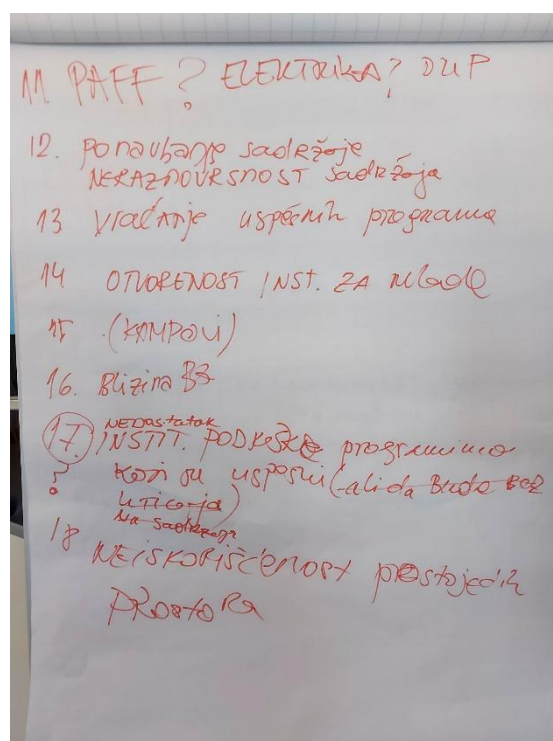 11 PAFF? ELEKTRIKA? DUP
12. ponavljanje sadržaja
NERAZNOVRSNOST sadržaja
13 vraćanje uspešnih programa
14 OTVORENOST INST. ZA mlade
15 (KAMPOVI)
16. Blizina
17. NEDOSTATAK
INSTIT. PODRŠKE programima
? koji su uspešni (-ali da budu BEZ
uticaja)
na sadržaj
18 NEISKORIŠĆENOST postojećih
PROSTORA